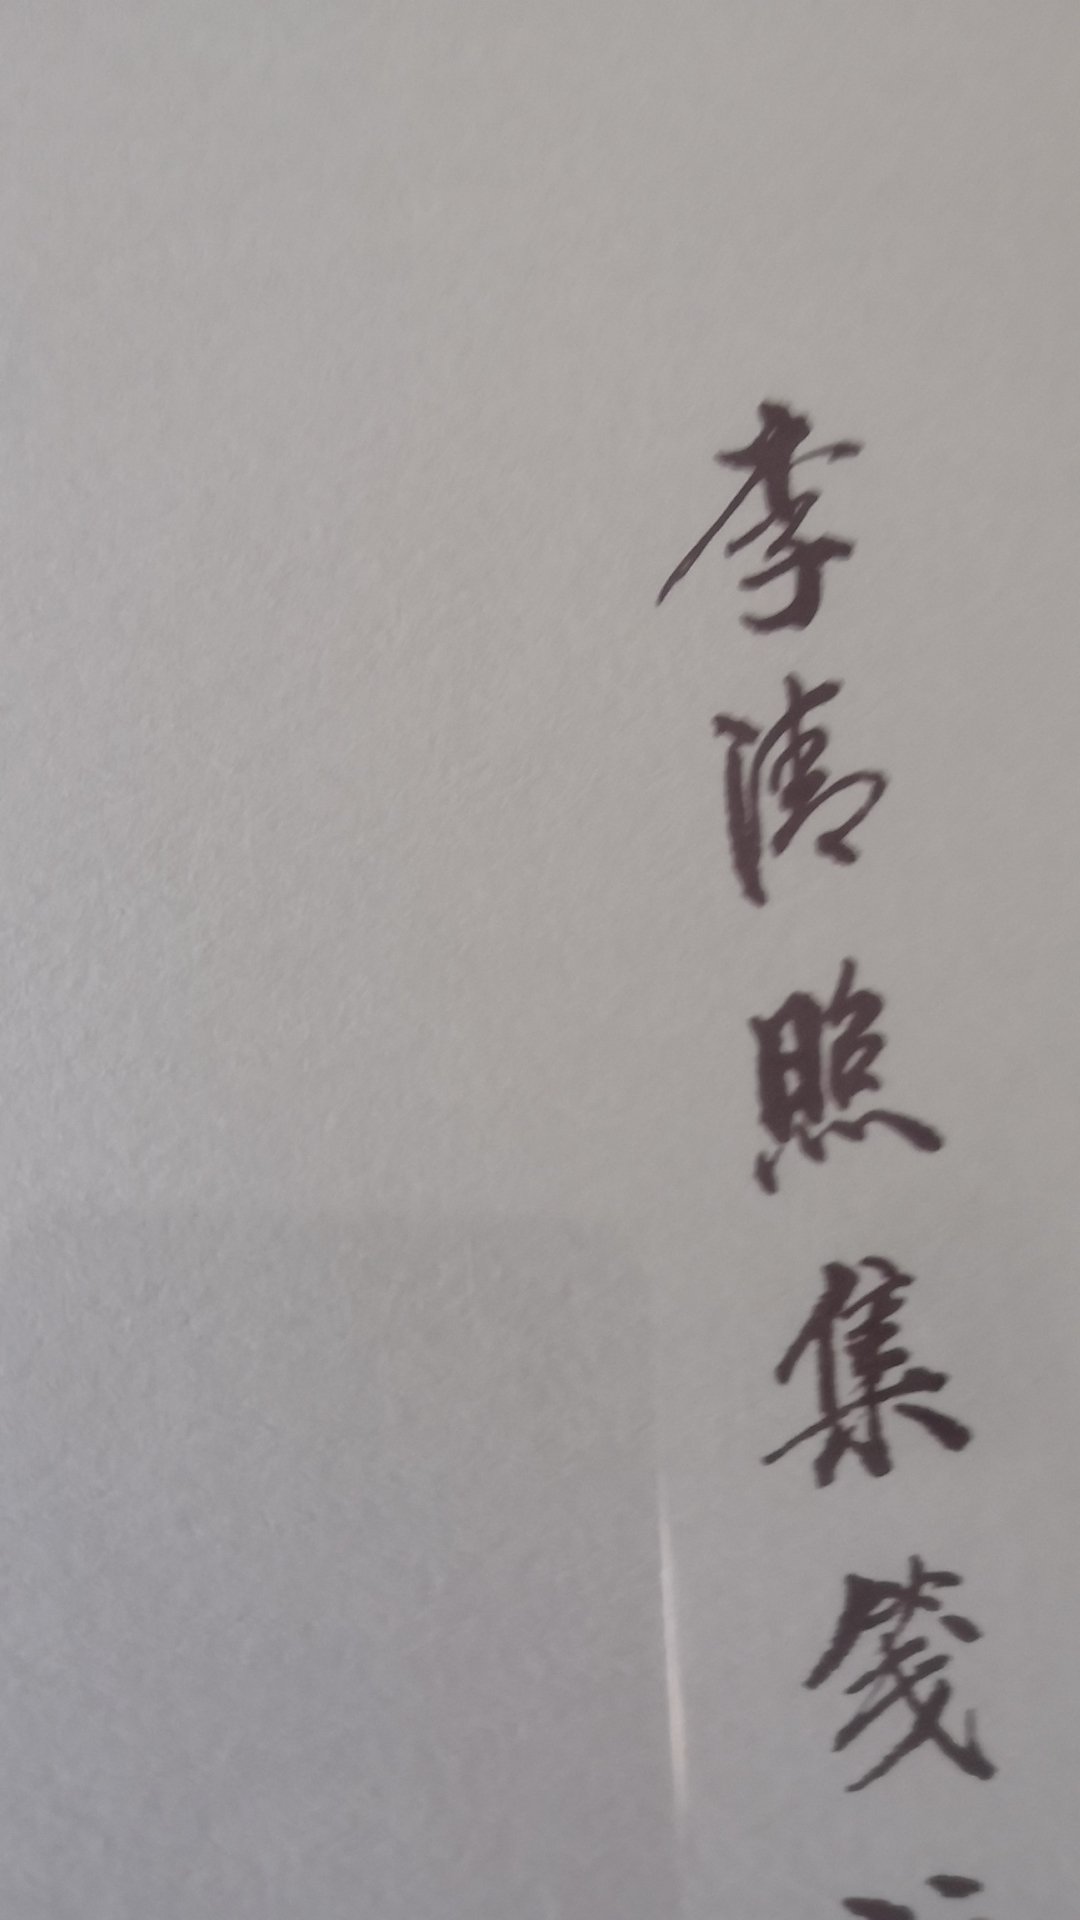 李清照集笺